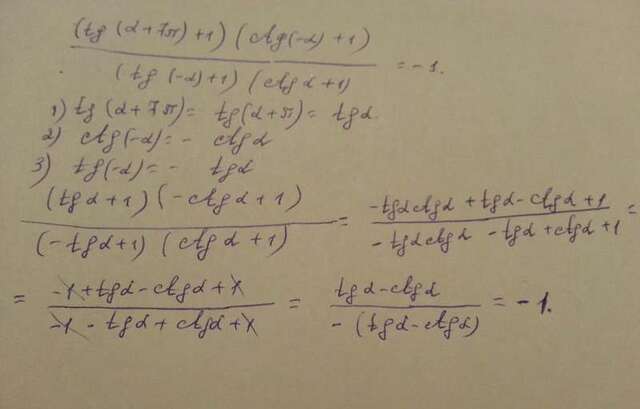 (tg (α+7π)+1) (ctg(-α)+1)
(tg (-α)+1) (ctg α+1) = -1.
1) tg (α+7π) = tg(α+π) = tgα.
2) ctg(-α) = - ctgα
3) tg(-α) = - tgα
(tgα+1) (-ctgα+1) / (-tgα+1) (ctgα+1) = -tgαctgα+tgα-ctgα+1 / -tgαctgα -tgα+ctgα+1 =
= -1+tgα-ctgα+1 / -1-tgα+ctgα+1 = tgα-ctgα / -(tgα-ctgα) = -1.